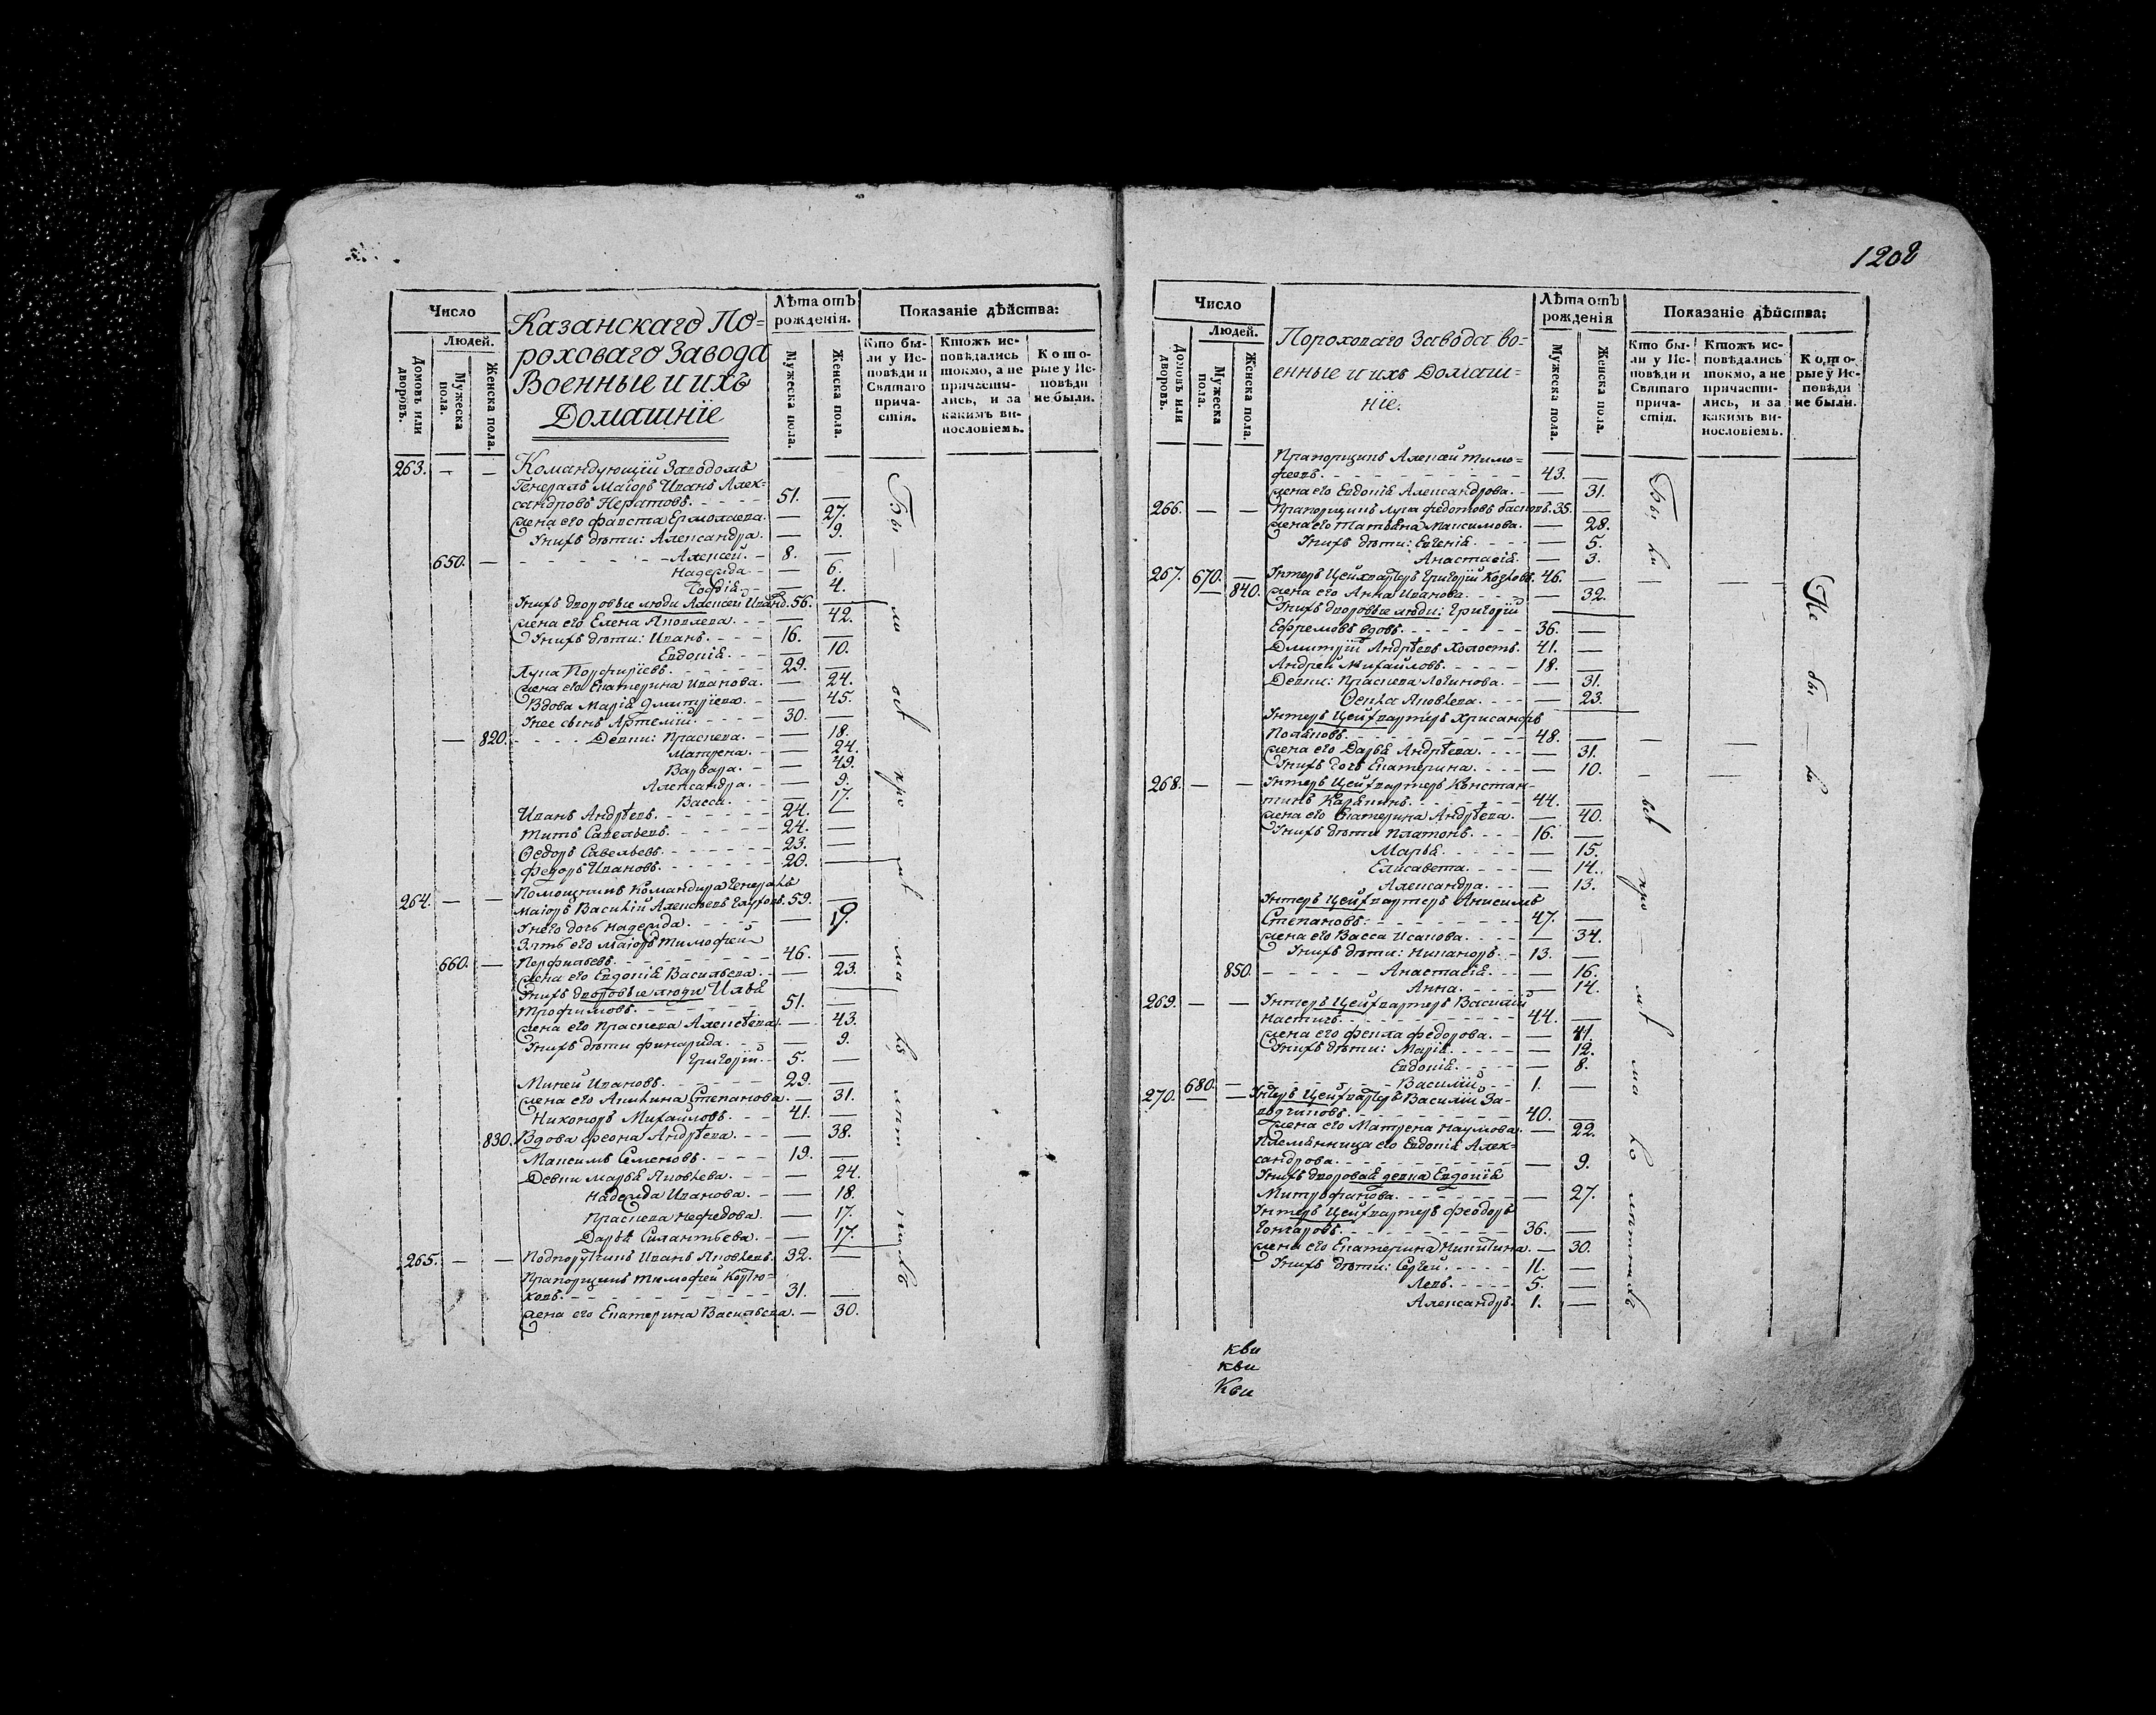 Число
Людей.
Домовъ или дворовъ.
Мужеска пола.
Женска пола.
Казанскаго По=
роховаго Завода
Военные и ихъ
Домашніе
Лѣта отъ
рожденія.
Мужеска пола.
Женска пола.
Показаніе дѣйства:
Кто бы-
ли у Ис-
повѣди и
Святаго
прича-
стія.
Ктожъ ис-
повѣдались
токмо, а не
причасти-
лись, и за
какимъ ви-
нословіемъ.
Кото-
рые у Ис-
повѣди
не были.
263. — — Командующій Заводомъ
Генералъ Маіоръ Иванъ Алек-
сандровъ Нератовъ. 51. —
жена его Фавста Ермолаева. — 27.
Унихъ дѣти: Александра. — 9.
650. — Алексей. 8. —
Надежда — 6.
Софія. — 4.
Унихъ дворовые люди Алексей Иванъ. 56. —
жена его Елена Яковлева. — 42.
Унихъ дѣти: Иванъ. 16. —
Евдокія. — 10.
Лука Порфиріевъ. 29. —
жена его Екатерина Иванова. — 24.
Вдова Марія Дмитріева. — 45.
Унее сынъ Артемій. 30. —
— 820. Девки: Праскева. — 18.
Матрена. — 24.
Варвара. — 49.
Александра. — 9.
Васса. — 17.
Иванъ Андрѣевъ. 24. —
Титъ Савельевъ. 24. —
Ѳедоръ Савельевъ. 23. —
Федоръ Ивановъ. 20. —
264. — — Помощникъ Командира Генералъ
Маіоръ Василій Алексѣевъ 59. —
Унего дочь Надежда. — 19.
Зять его Маіоръ Тимофей
660. — Перфильевъ. 46. —
жена его Евдокія Васильева. — 23.
Унихъ дворовые люди Илья
Трофимовъ. 51. —
жена его Праскева Алексѣева. — 43.
Унихъ дѣти — 9.
Григорій. 5. —
Миней Ивановъ. 29. —
жена его Акилина Степанова. — 31.
Никоноръ Михайловъ. 41. —
830. Вдова Феона Андрѣева. — 38.
Максимъ Семеновъ. 19. —
Девки Марья Яковлева. — 24.
Надежда Иванова. — 18.
Праскева Нефедова. — 17.
Дарья Силантьева. — 17.
265. — — Подпоручикъ Иванъ Яковлевъ. 32. —
Прапорщикъ Тимофей Кортю-
ховъ. 31. —
жена его Екатерина Васильева. — 30.
1202
Число
Людей.
Домовъ или дворовъ.
Мужеска пола.
Женска пола.
Пороховаго Завода во-
енные и ихъ Домаш=
ніе.
Лѣта отъ
рожденія
Мужеска пола.
Женска пола.
Показаніе дѣйства:
Кто бы-
ли у Ис-
повѣди и
Святаго
прича-
стія.
Ктожъ ис-
повѣдались
токмо, а не
причасти-
лись, и за
какимъ ви-
нословіемъ.
Кото-
рые у Ис-
повѣди
не были.
Прапорщикъ Алексей Тимо=
феевъ. 43. —
жена его Евдокія Александрова. — 31.
266. — — Прапорщикъ Лука Федотовъ 35. —
жена его Татьяна Максимова. — 28.
Унихъ дѣти: Евгенія. — 5.
Анастасія. — 3.
267. 670. — Унтеръ Цейхвартеръ Григорій Козловъ. 46. —
— 840. жена его Анна Иванова. — 32.
Унихъ дворовые люди: Григорій
Ефремовъ вдовъ. 36. —
Дмитрій Андрѣевъ холостъ. 41. —
Андрей Михайловъ. 18. —
Девки: Праскева Логинова. — 31.
Ѳекла Яковлева. — 23.
Унтеръ Цейхвартеръ Хрисанфъ
Поляковъ. 48. —
жена его Дарья Андрѣева. — 31.
Унихъ дочь Екатерина. — 10.
268. — — Унтеръ Цейхвартеръ Констан-
тинъ 44. —
жена его Екатерина Андрѣева. — 40.
Унихъ дѣти Платонъ. 16. —
Марья. — 15.
Елисавета. — 14.
Александра. — 13.
Унтеръ Цейхвартеръ Анисимъ
Степановъ. 47. —
жена его Васса Исакова. — 34.
Унихъ дѣти: Никаноръ. 13. —
850. Анастасія. — 16.
Анна. — 14.
269. — — Унтеръ Цейхвартеръ Василій
Настичъ. 44. —
жена его Фекла Федорова. — 41.
Унихъ дѣти: Марія. — 12.
Евдокія. — 8.
680. — Василій. 1. —
270. — — Унтеръ Цейхвартеръ Василій За-
44. жена его Матрена Наумова. — 22.
Племянница его Евдокія Алек-
сандрова. — 9.
Унихъ дворовая девка Евдокія
Митрофанова. — 27.
Унтеръ Цейхвартеръ Феодоръ
Гончаровъ. 36. —
жена его Екатерина Никитина. — 30.
Унихъ дѣти: Сергей. 11. —
Левъ. 5. —
Александръ. 1. —
кви
кви
Кви